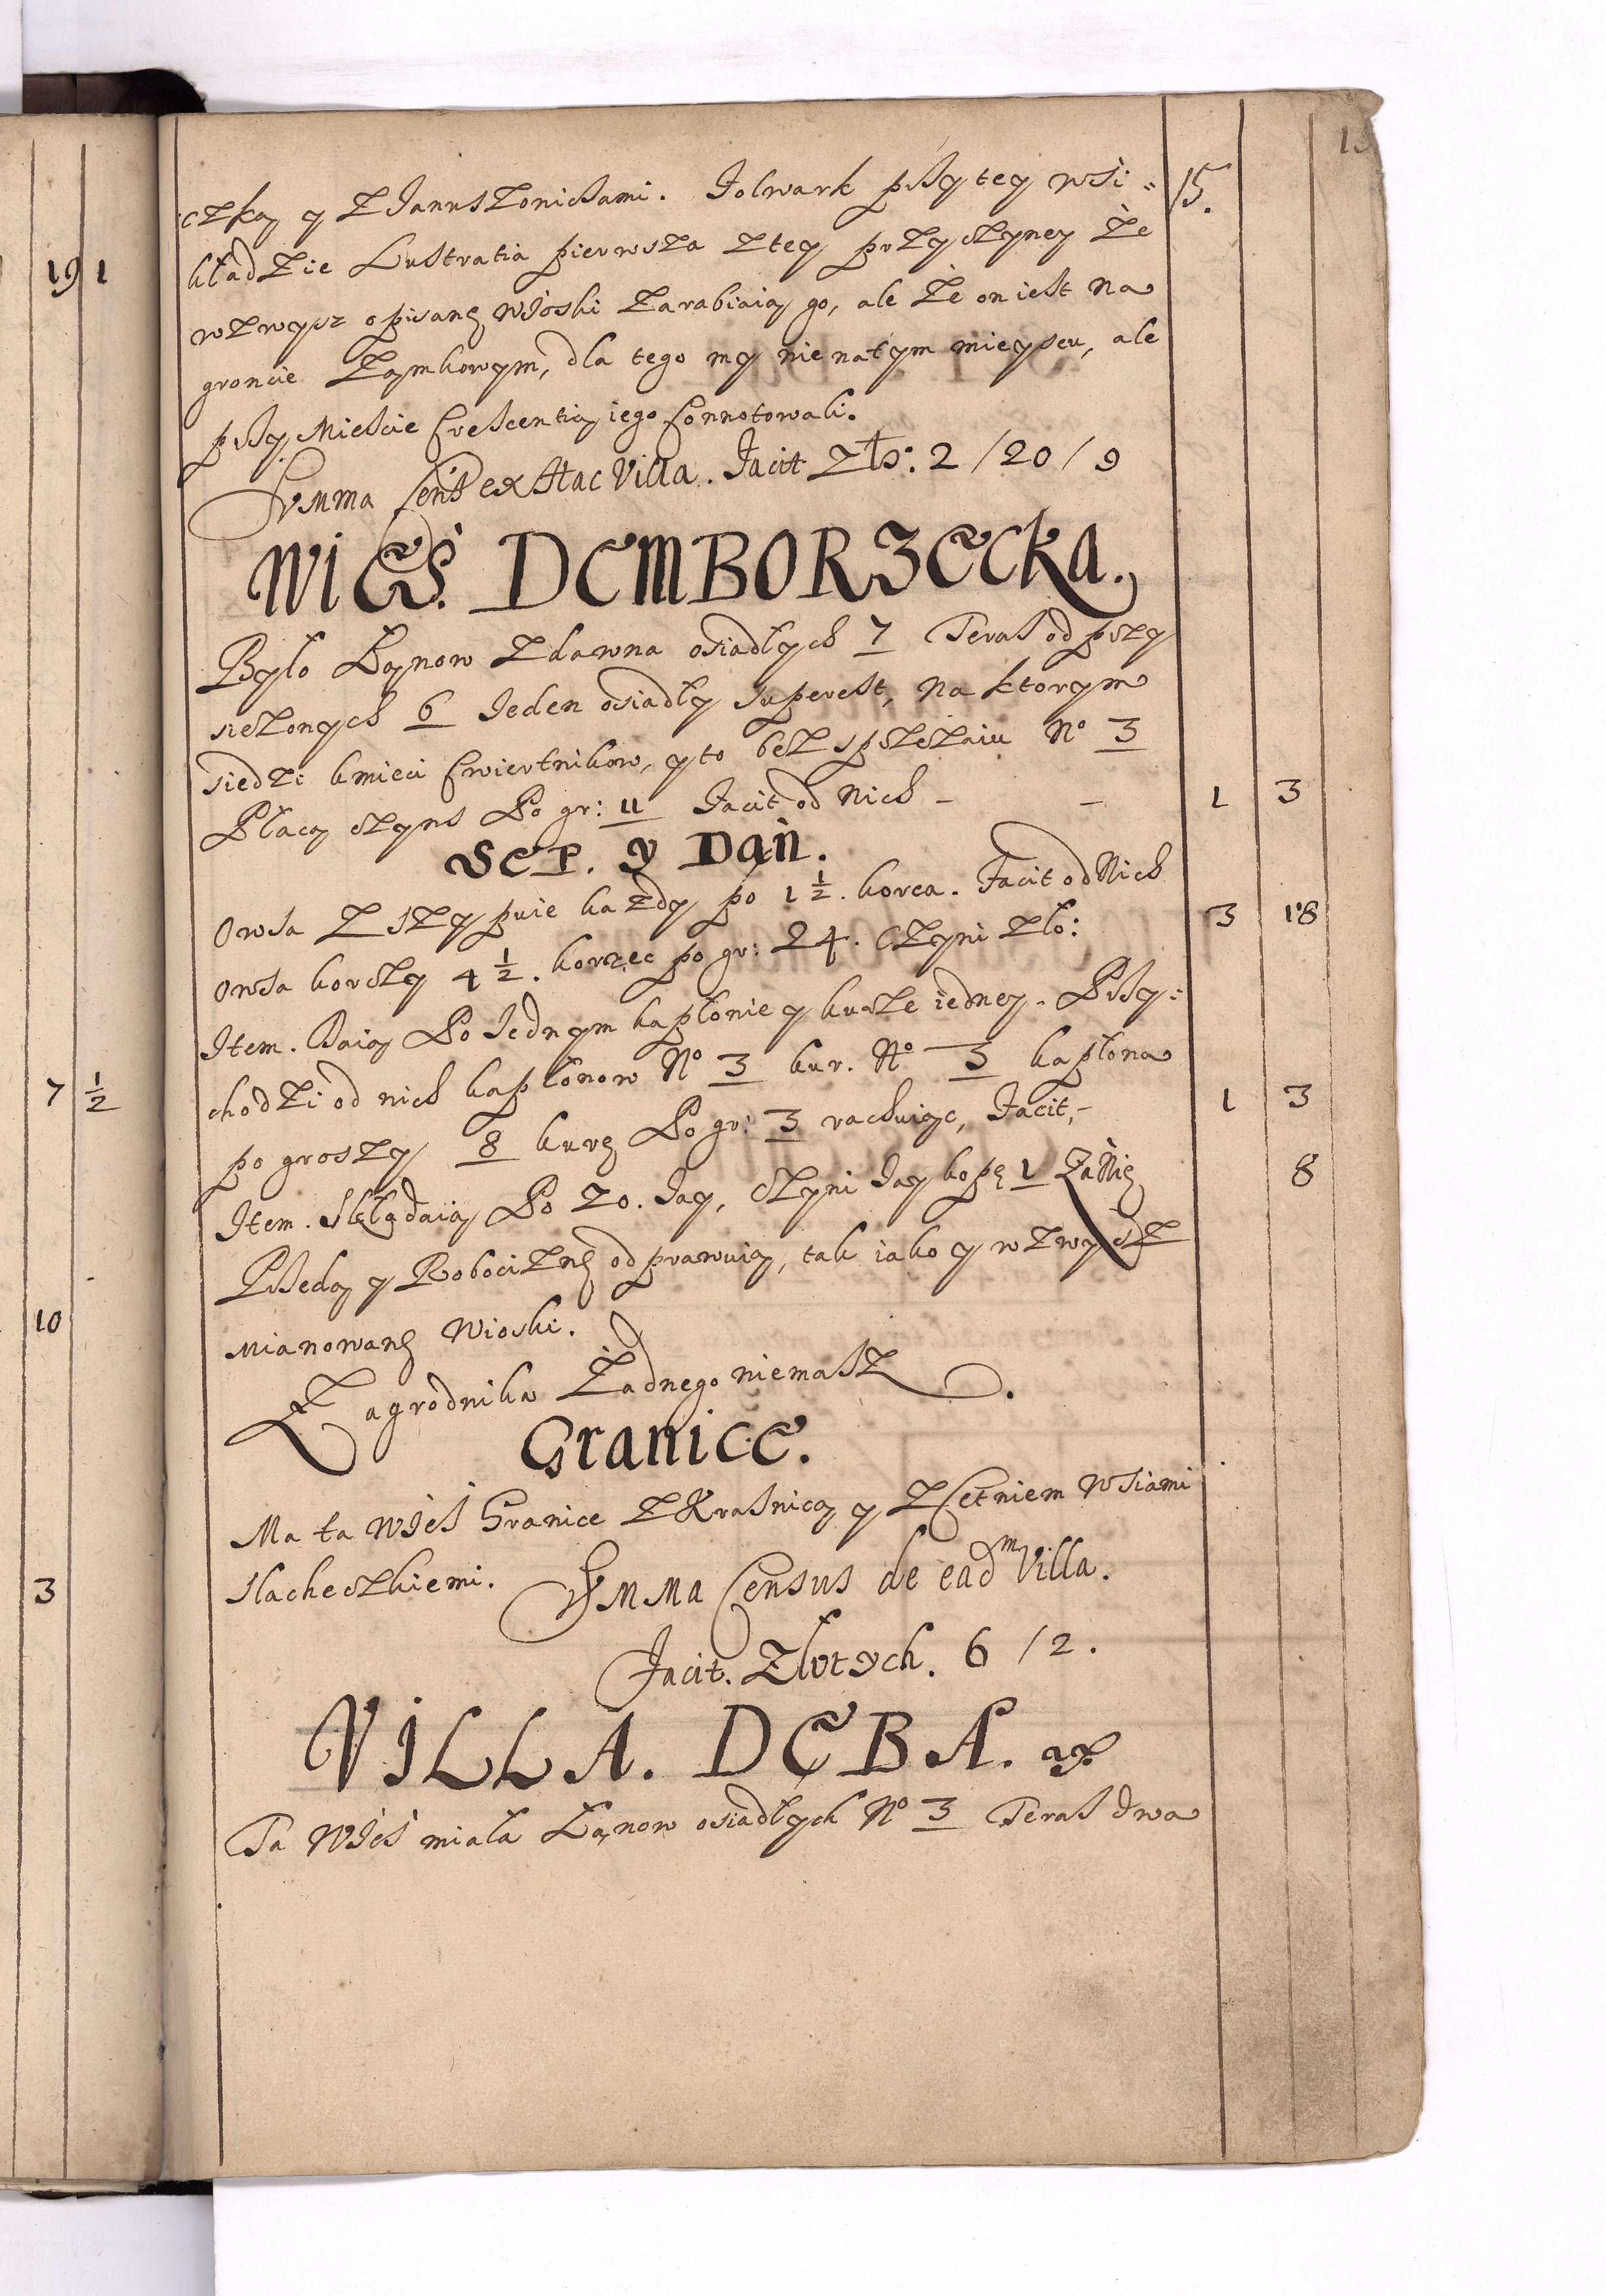 15.
czką y z Januszowicami. Folwark przy tey wsi=
kładzie Lustratia pierwsza z tey przyczyney że
wzwysz opisane wioski zarabiaią go, ale że on iest na
groncie Zamkowym, dla tego my nie na tym mieyscu, ale
przy Mieście Crescentią iego Connotowali.
Summa Cens9 ex Hac Villa. Facit Zło: 2 / 20 / 9
WIEŚ. DEMBORZECKA.
Było Łanow zdawna osiadłych 7 Teras od przy
sieżonych 6 Ieden osiadły superest, na ktorym
siedzi kmieci Cwiertnikow, y to bez sprzężaiu No 3
Płacą czyns Po gr: 11 Facit od Nich - - 1 3
SEP. Y Dań.
Owsa zszypuie każdy po 1 1/2. korca. Facit od Nich
Owsa korczy 4 1/2. korzec po gr: 24. Czyni zło: 3 18
Item. Daią Po Iednym kapłonie y kurze iedney. Przy=
chodzi od nich kapłonow No 3 kur. No 3 kapłona
po groszy 8 kurę Po gr: 3 rachuiąc, Facit,- 1 3
Item. Składaią Po 20. Iay, Czyni Iay kopę 1 Zanię 8
Powozy y Robociznę odprawuią, tak iako y wzwysz
mianowane Wioski.
Zagrodnika Żadnego niemasz.
Granice.
Ma ta Wieś Granice z Kraśnicą y z Cetniem wsiami
slacheczkiemi. Summa Census de eadm Villa.
Facit. Zlotych. 6 / 2.
VILLA. DĘBA.
Ta Wieś miała Łanow osiadłych No 3 Teras dwa
19 1
7 1/2
10
3